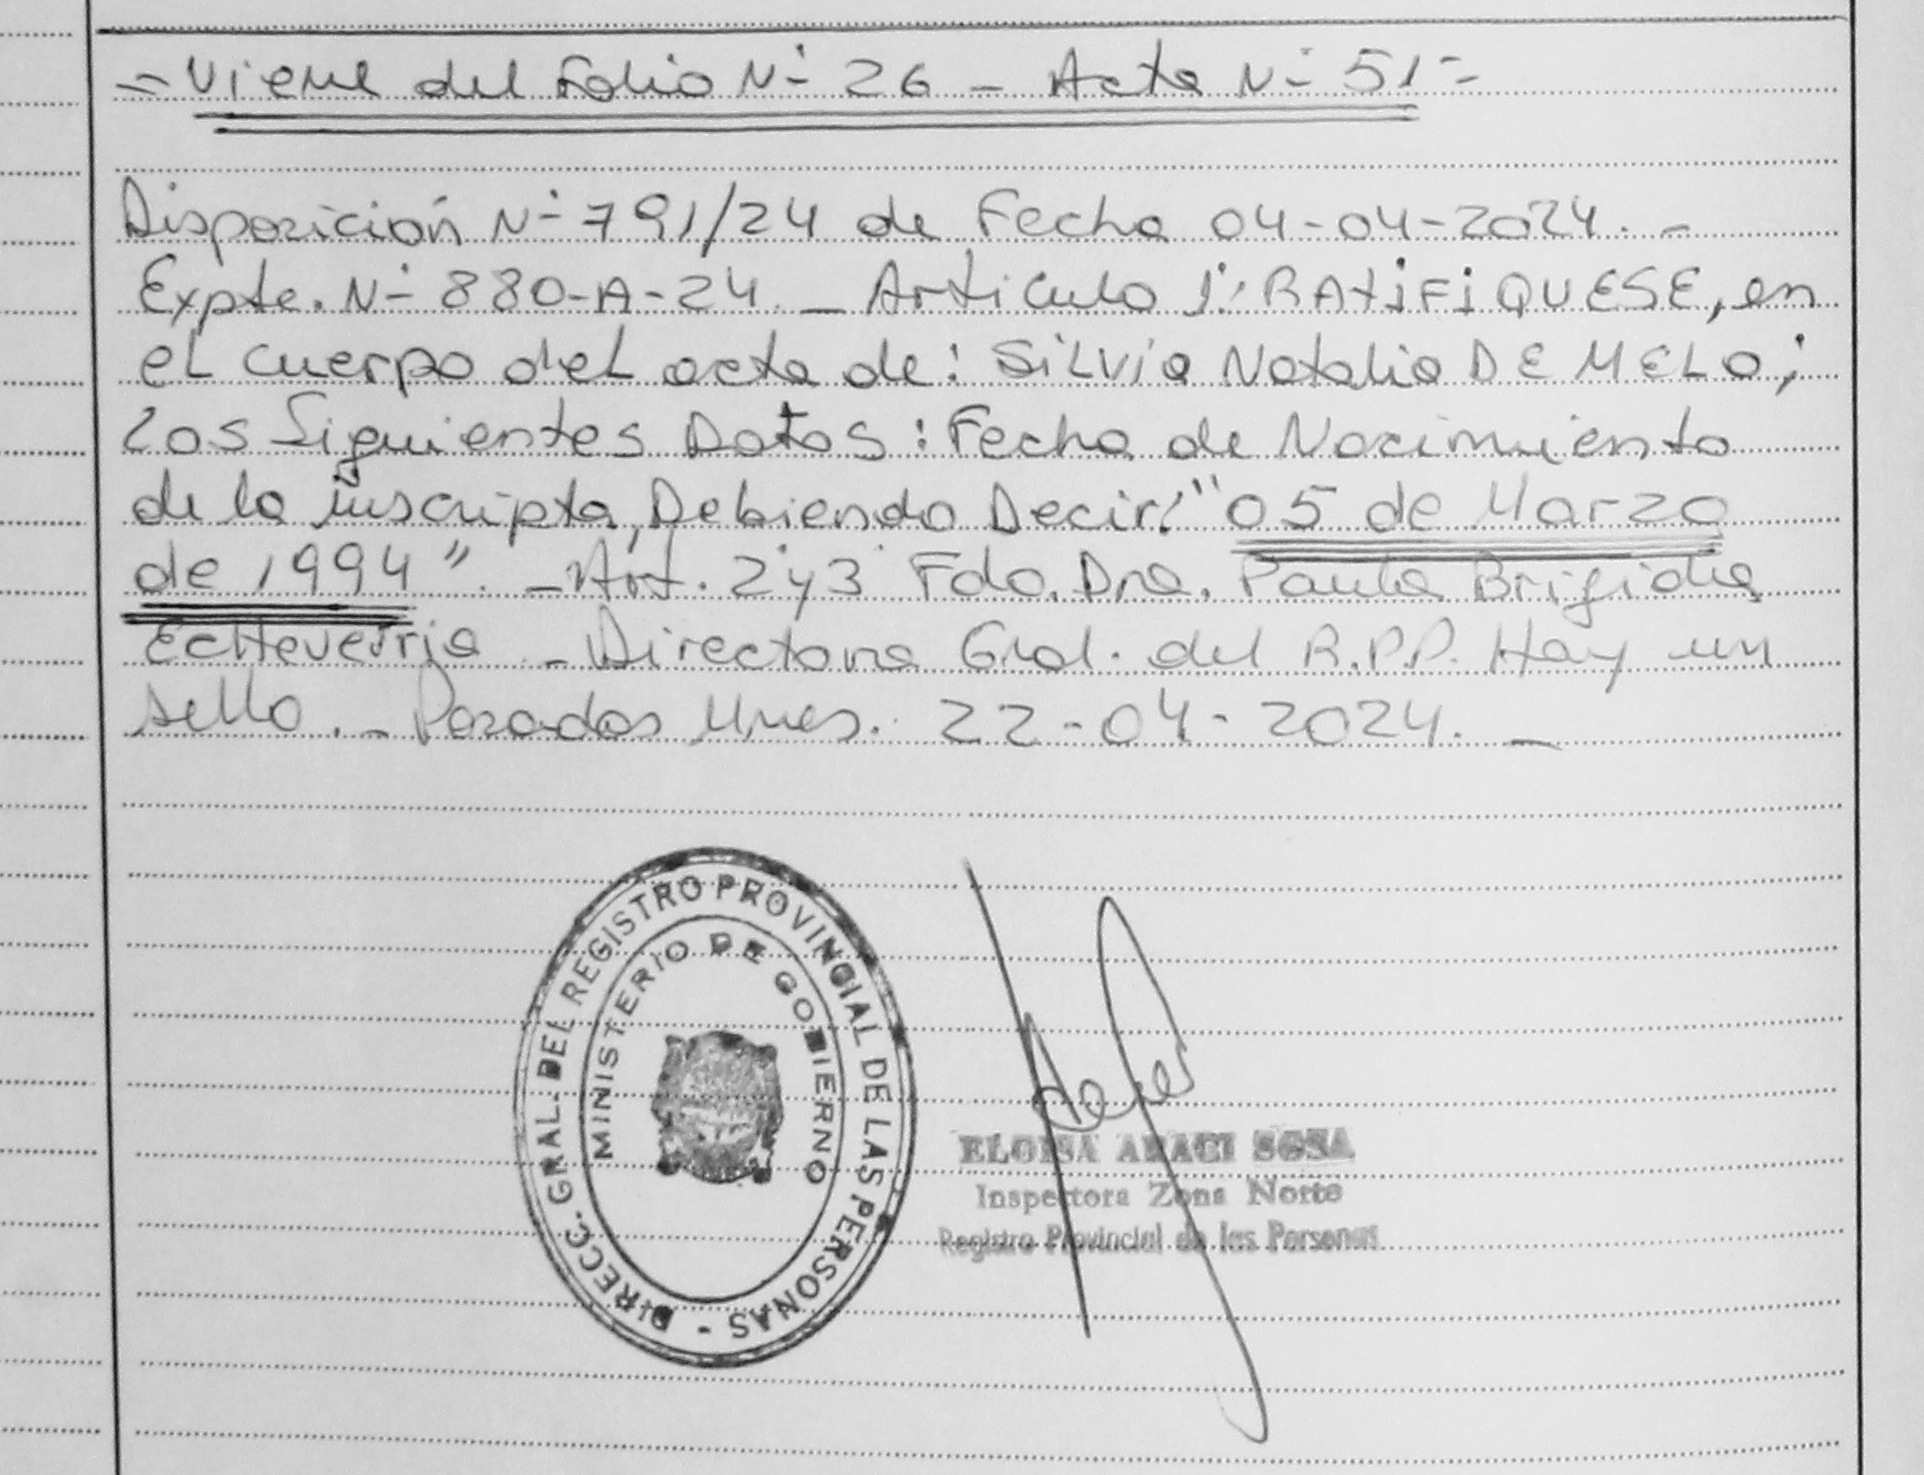 - Viene del Folio N° 26 - Acta N° 51 -
Disposición N° 791/24 de Fecha 04-04-2024. -
Expte. N° 880-A-24. - Articulo 1°: RATIFIQUESE, en
el cuerpo del acta de: Silvia Natalia DE MELO;
Los Siguientes Datos: Fecha de Nacimiento
de la inscripta, Debiendo Decir: "05 de Marzo
de 1994". - Art. 2° y 3° Fdo. Dra. Paula Brigida
Echeverria - Directora Gral. del R.P.P. Hay un
sello. - Posadas Mnes. 22-04-2024. -
DIRECC. GRAL. DEL REGISTRO PROVINCIAL DE LAS PERSONAS -
MINISTERIO DE GOBIERNO
ELOISA ARACI SOSA
Inspectora Zona Norte
Registro Provincial de las Personas